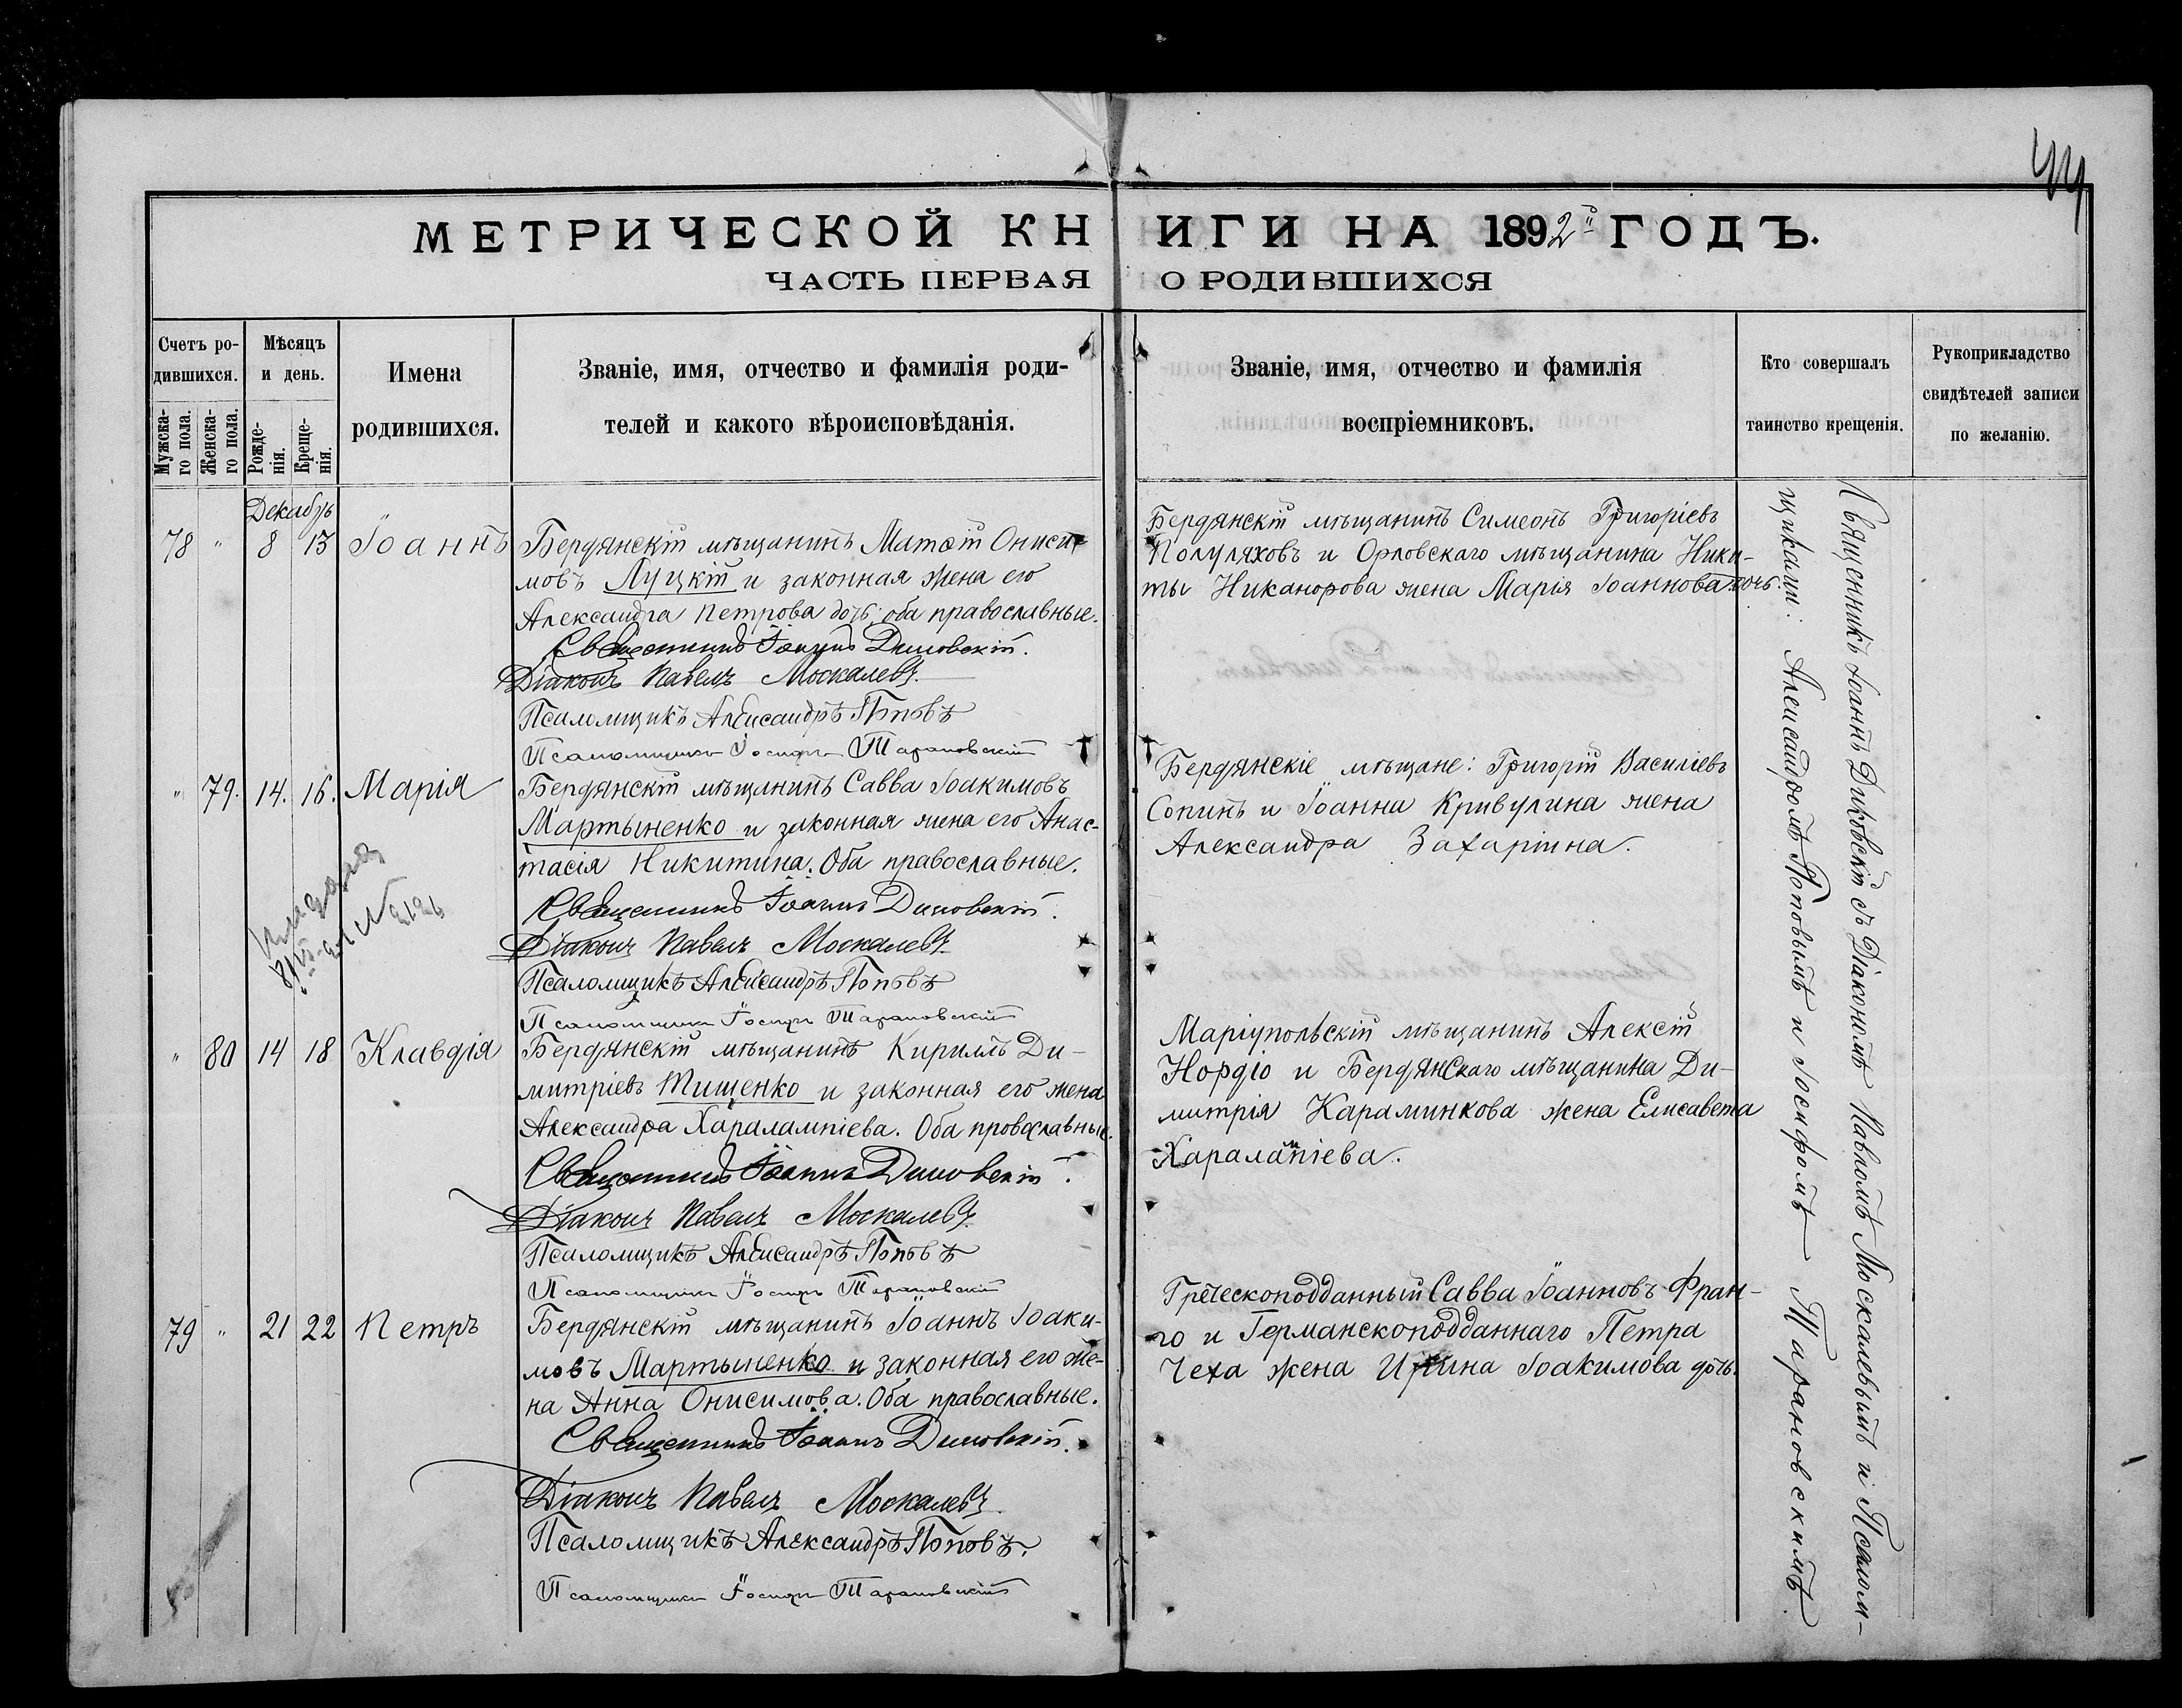 44
МЕТРИЧЕСКОЙ КНИГИ НА 1892й ГОДЪ.
ЧАСТЬ ПЕРВАЯ О РОДИВШИХСЯ
Счетъ ро-
дившихся.
Мужска-
го пола.
Женска-
го пола.
Мѣсяцъ
и день.
Рожде-
нія.
Креще-
нія.
Имена
родившихся.
Званіе, имя, отчество и фамилія роди-
телей и какого вѣроисповѣданія.
Званіе, имя, отчество и фамилія
воспріемниковъ.
Кто совершалъ
таинство крещенія.
Рукоприкладство
свидѣтелей записи
по желанію.
Декабрь
78 " 8 13 Іоаннъ
Бердянскій мѣщанинъ Матѳій Ониси-
мовъ Луцкій и законная жена его
Александра Петрова дочь; оба православные.
Священникъ Іоаннъ Диковскій.
Діаконъ Павелъ Москалевъ.
Псаломщикъ Александръ Поповъ
Псаломщикъ Іосифъ Тарановскій
Бердянскій мѣщанинъ Симеонъ Григоріевъ
Полуляховъ и Орловскаго мѣщанина Ники-
ты Никанорова жена Марія Іоаннова дочь.
" 79. 14. 16. Марія
Бердянскій мѣщанинъ Савва Іоакимовъ
Мартыненко и законная жена его Анас-
тасія Никитина. Оба православные.
Священникъ Іоаннъ Диковскій.
Діаконъ Павелъ Москалевъ.
Псаломщикъ Александръ Поповъ
Псаломщикъ Іосифъ Тарановскій
Бердянскіе мѣщане: Григорій Василіевъ
Сопинъ и Іоанна Кривулина жена
Александра Захаріина.
" 80 14 18 Клавдія
Бердянскій мѣщанинъ Кириллъ Ди-
митріевъ Тищенко и законная его жена
Александра Харалампіева. Оба провославные.
Священникъ Іоаннъ Диковскій.
Діаконъ Павелъ Москалевъ.
Псаломщикъ Александръ Поповъ
Псаломщикъ Іосифъ Тарановскій
Маріупольскій мѣщанинъ Алексій
Нордіо и Бердянскаго мѣщанина Ди-
митрія Караминкова жена Елисавета
Харалампіева.
79 " 21 22 Петръ
Бердянскій мѣщанинъ Іоаннъ Іоаки-
мовъ Мартыненко и законная его же-
на Анна Онисимова. Оба православные.
Священникъ Іоаннъ Диковскій.
Діаконъ Павелъ Москалевъ.
Псаломщикъ Александръ Поповъ.
Псаломщикъ Іосифъ Тарановскій
Греческоподданный Савва Іоанновъ Фран-
го и Германскоподданнаго Петра
Чеха жена Ирина Іоакимова дочь.
Священникъ Іоаннъ Диковскій съ Діакономъ Павломъ Москалевымъ и Псалом-
щиками: Александромъ Поповымъ и Іосифомъ Тарановскимъ.